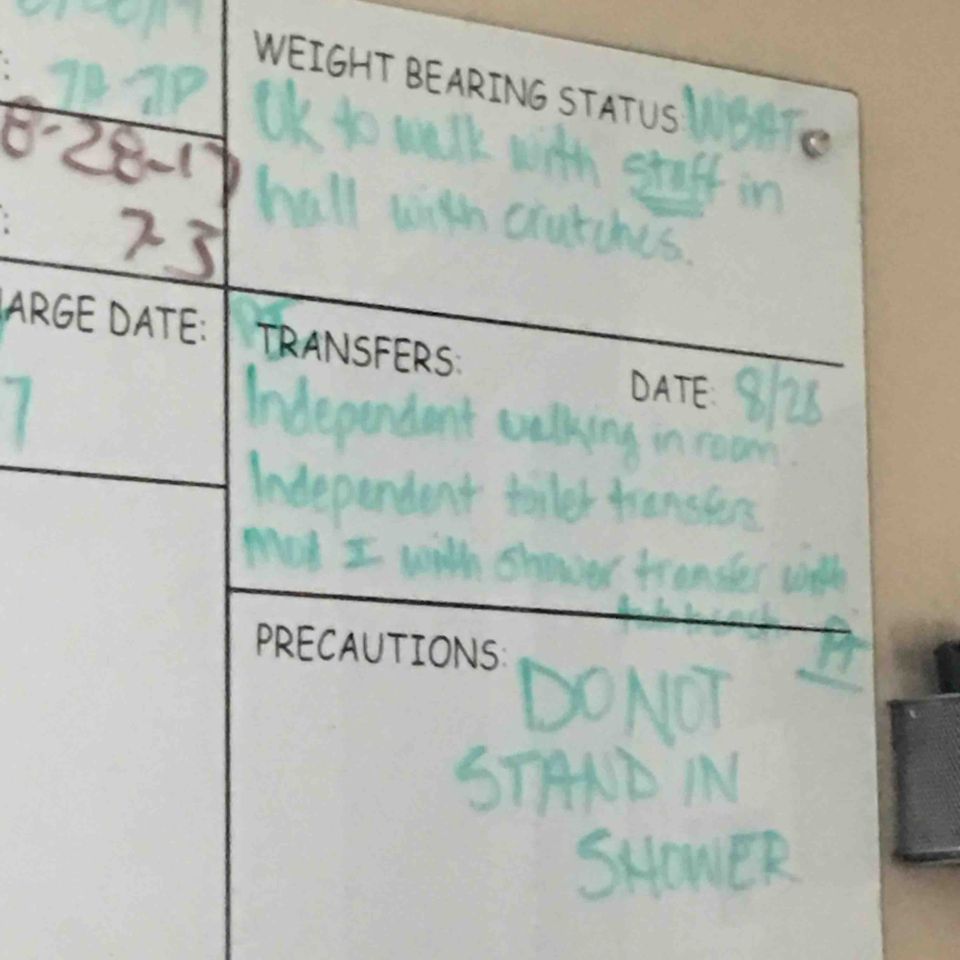 7A-7P
8-28-17
7-3
ARGE DATE:
7
WEIGHT BEARING STATUS: WBAT
Ok to walk with staff in
hall with crutches.
PT
TRANSFERS:
DATE: 8/28
Independent walking in room.
Independent toilet transfers
Mod I with shower transfer with
PT
PRECAUTIONS:
DO NOT
STAND IN
SHOWER